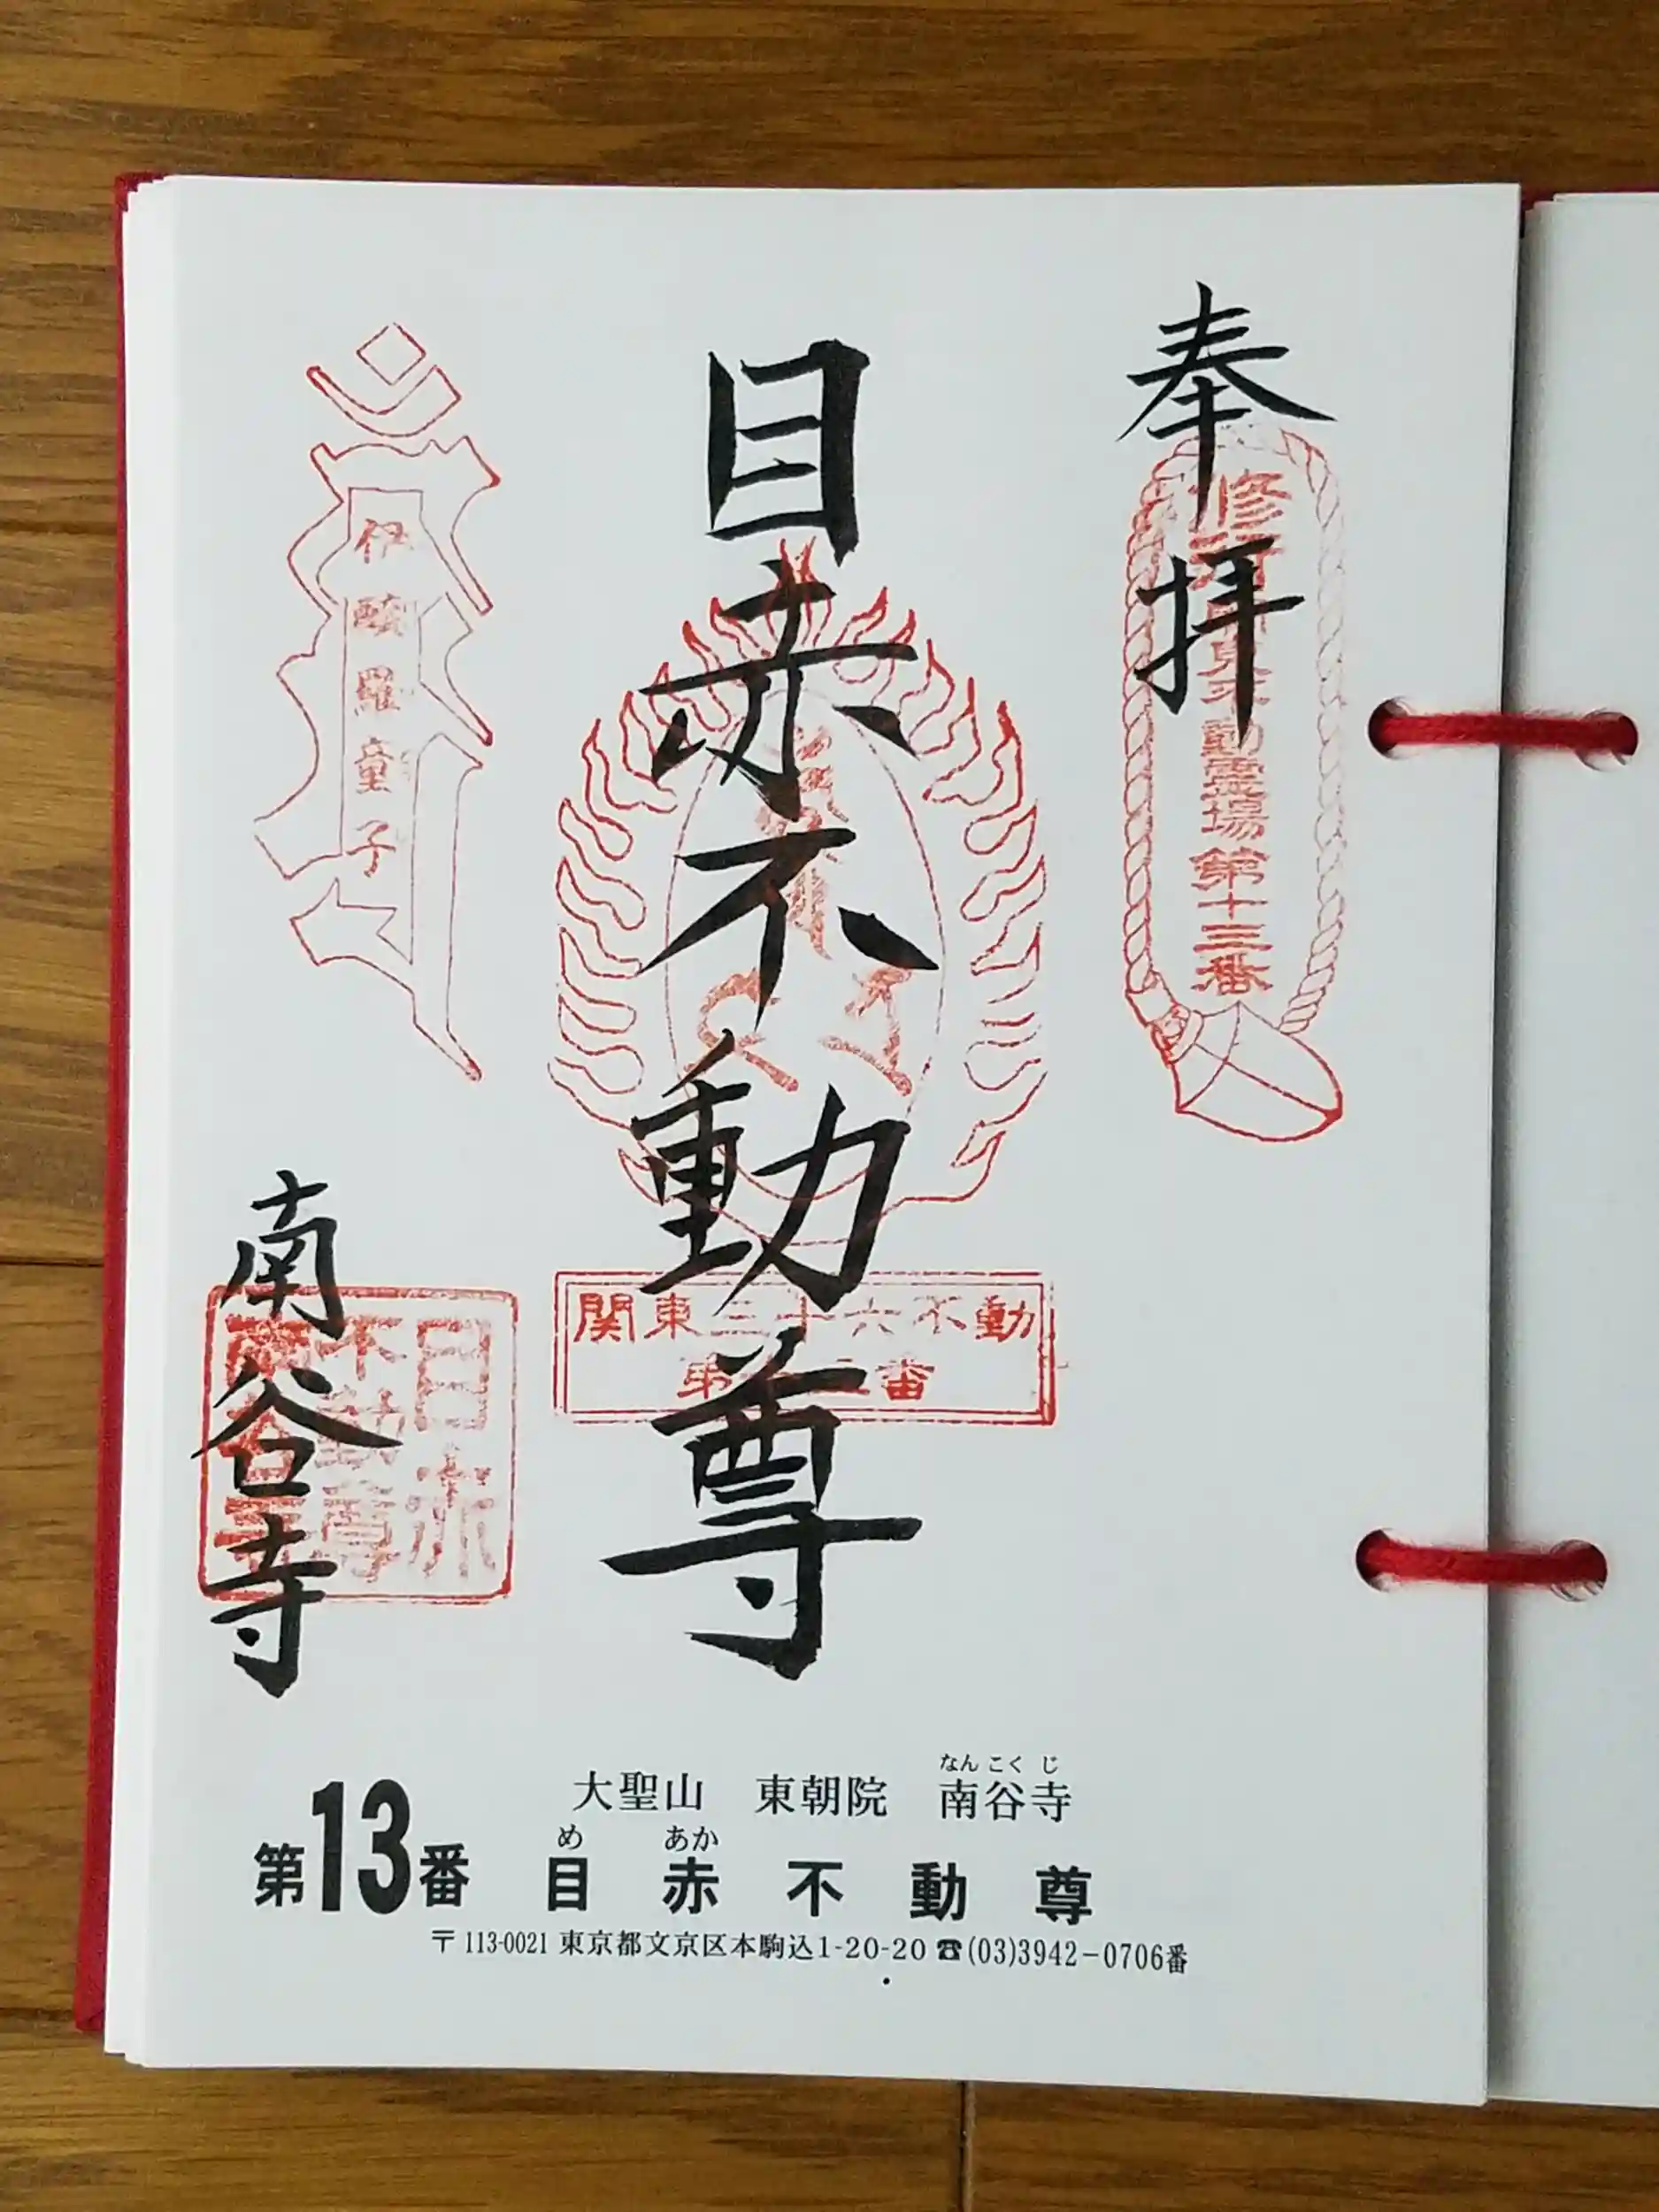 奉拝
修行 関東不動霊場第十三番
目赤不動尊
関東三十六不動
第十三番
羅童子
南谷寺
目赤
不動尊
南谷寺
なんこくじ
大聖山 東朝院 南谷寺
め あか
第13番 目赤不動尊
〒113-0021 東京都文京区本駒込1-20-20 ☎(03)3942-0706番